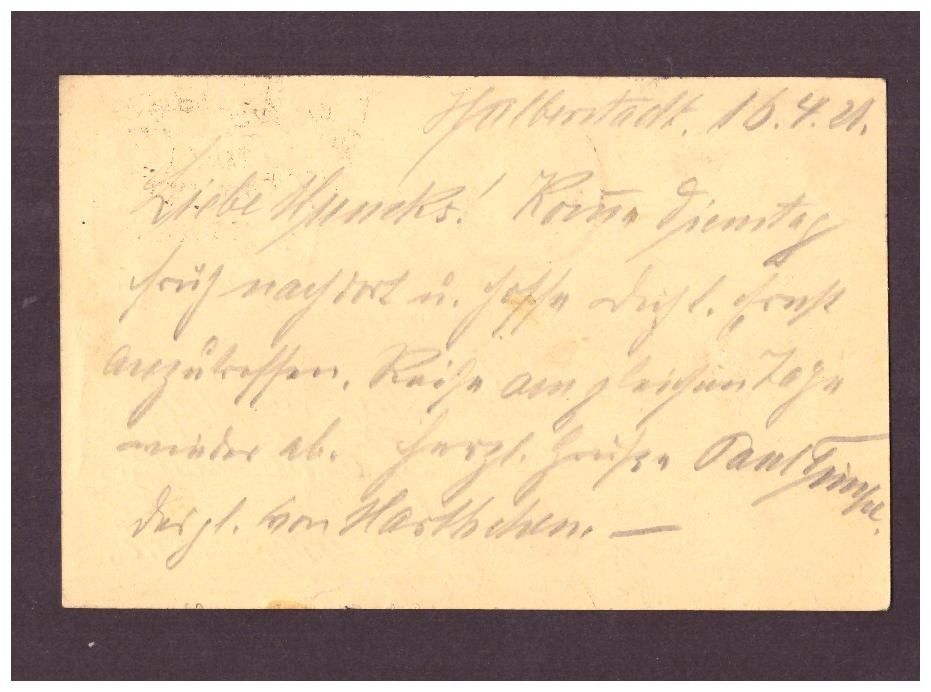 Halberstadt. 16.4.21.
Liebe ! Komme Dienstag
früh nach dort u. hoffe Dich l. Ernst
anzutreffen. Reise am gleichen Tage
wieder ab. Herzl. Grüße Paul
Dergl. von Marthchen. —